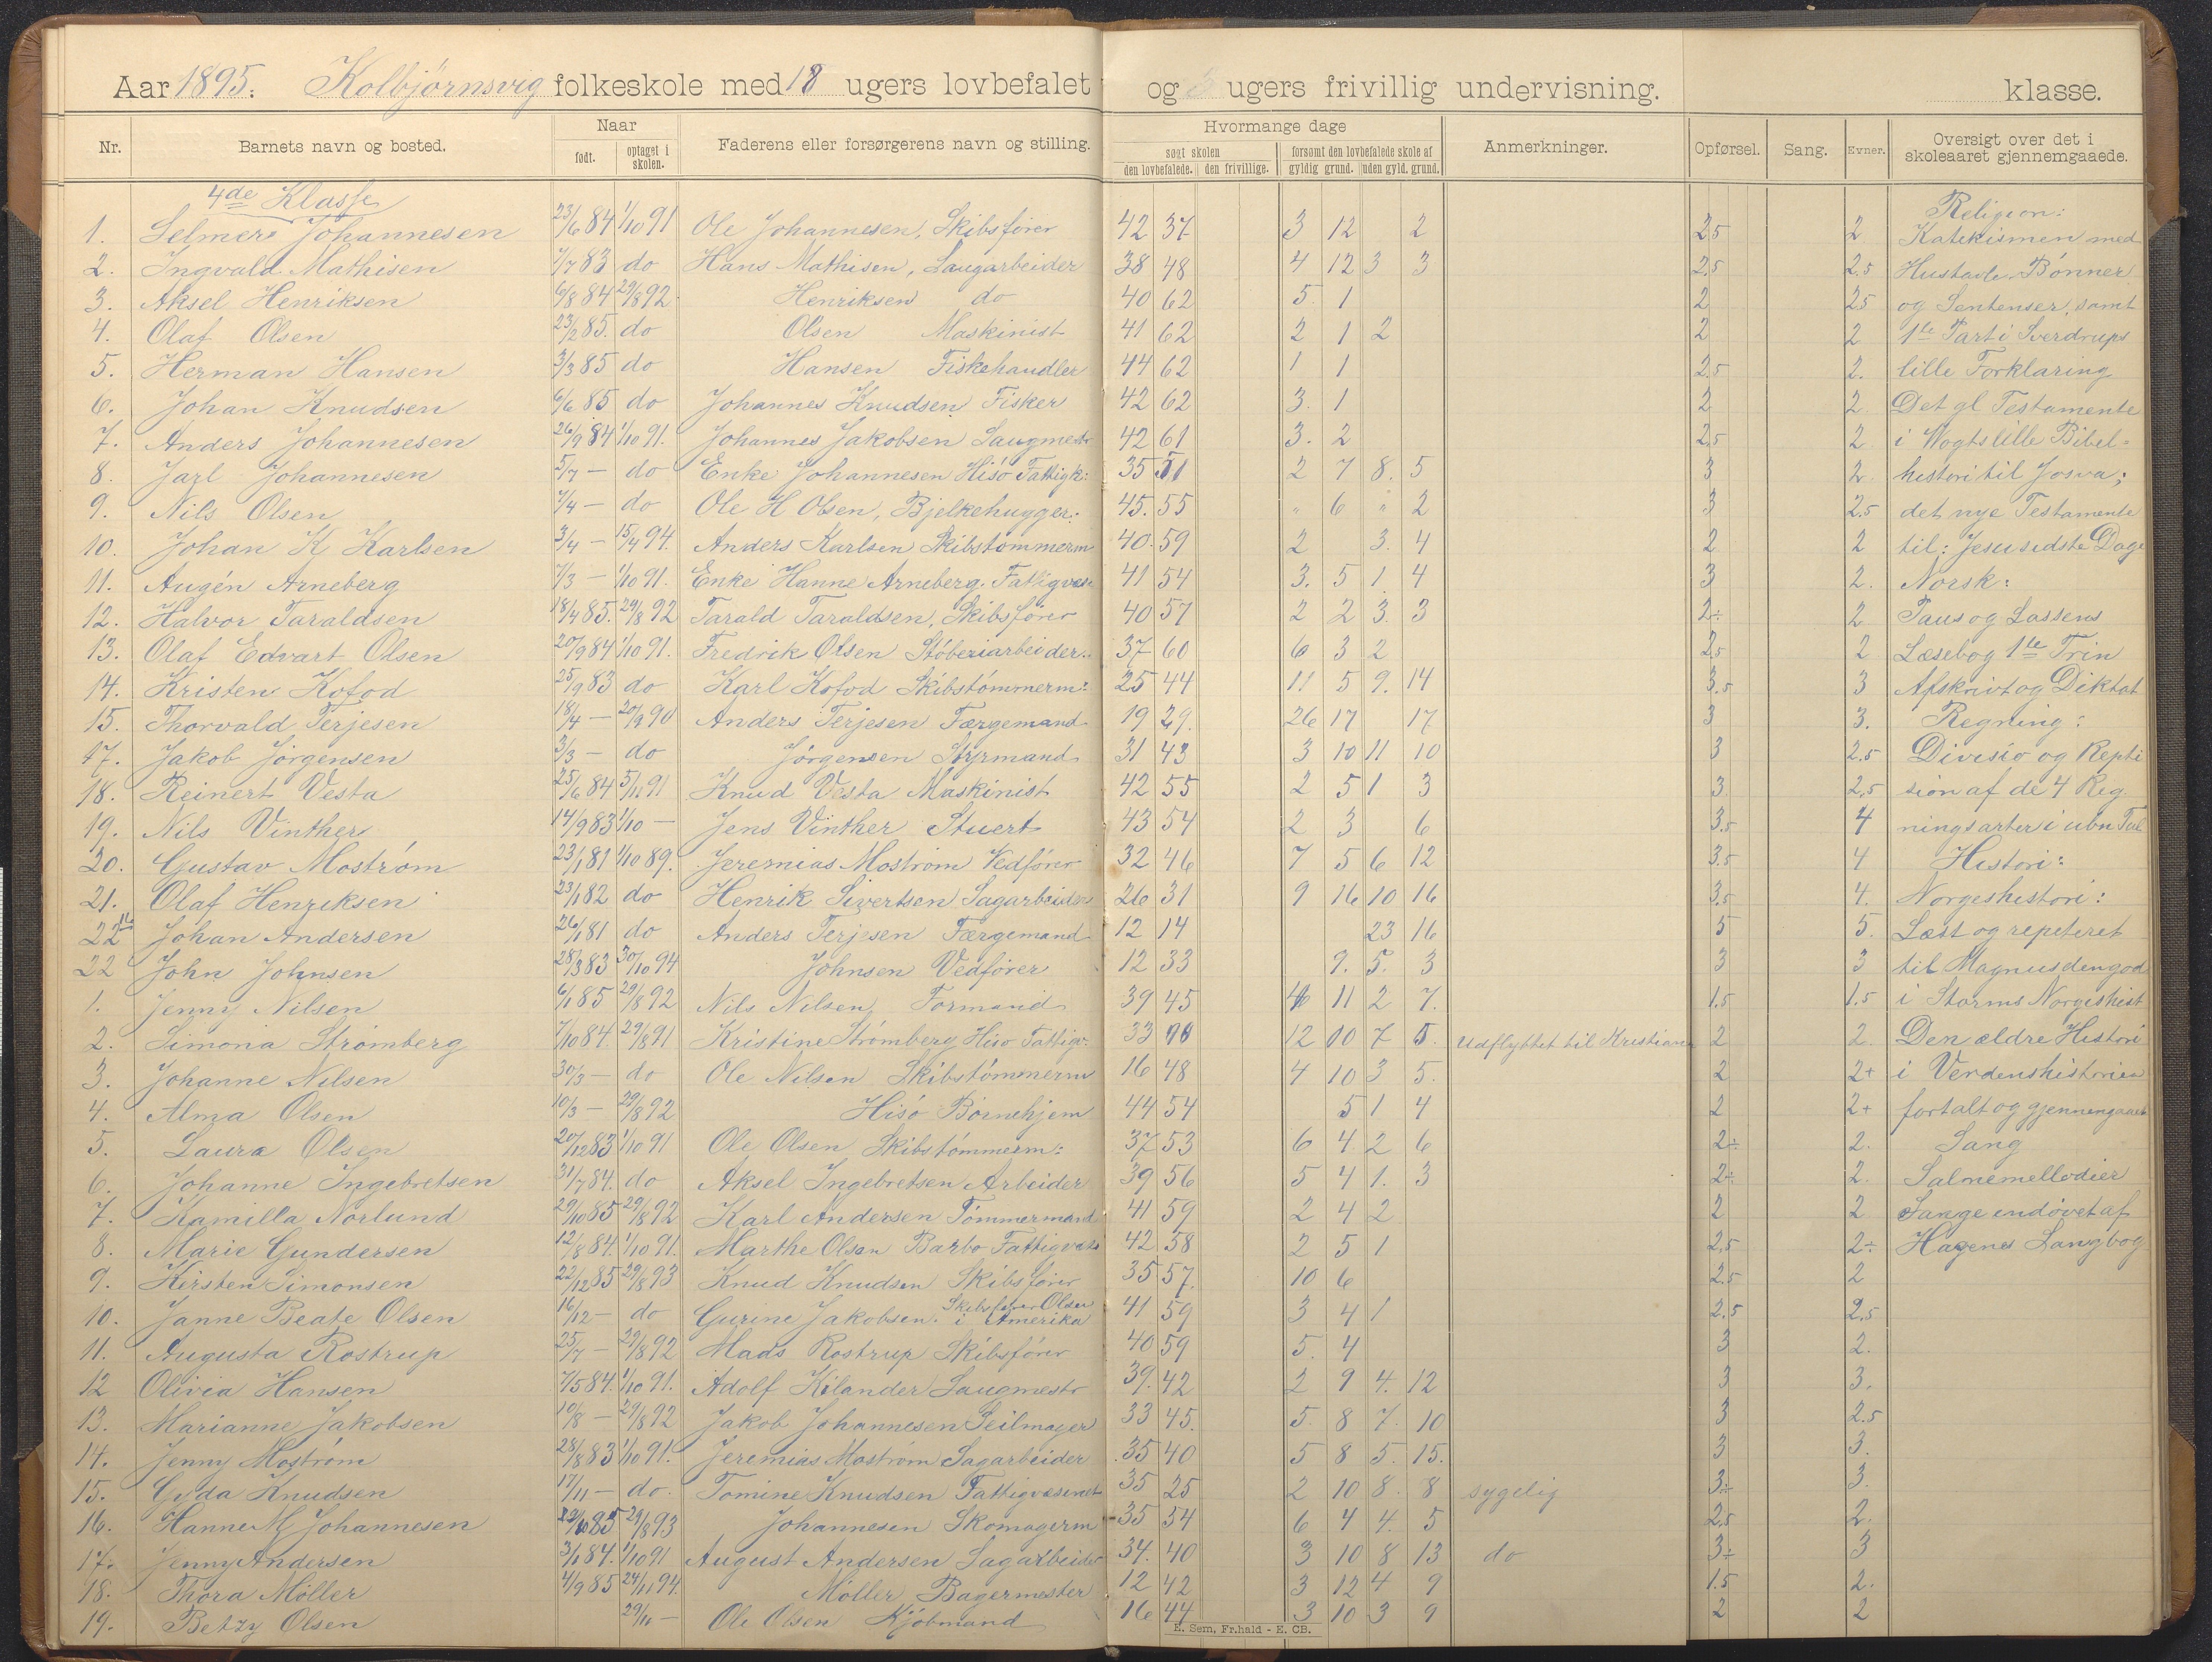 Aar 1895. Kolbjørnsvig folkeskole med 18 ugers lovbefalet og ugers frivillig undervisning. klasse.
Nr. Barnets navn og bosted. Naar født. optaget i skolen. Faderens eller forsørgerens navn og stilling. Hvormange dage søgt skolen den lovbefalede. den frivillige. forsømt den lovbefalede skole af gyldig grund. uden gyld. grund. Anmerkninger. Opførsel. Sang. Evner. Oversigt over det i skoleaaret gjennemgaaede.
4de Klasse Religion:
1. Selmer Johannesen 23/6 84 1/10 91 Ole Johannesen, Skibsfører 42 37 3 12 2 2.5 2 Katekismen med
2. Ingvald Mathisen 7/7 83 do Hans Mathisen, Saugarbeider 38 48 4 12 3 3 2.5 2.5 Hustavle Bønner
3. Aksel Henriksen 6/8 84 29/8 92 Henriksen do 40 62 5 1 2 2.5 og Sentenser, samt
4. Olaf Olsen 23/2 85. do Olsen Maskinist 41 62 2 1 2 2 2 1ste Part i Sverdrups
5. Herman Hansen 3/3 85 do Hansen Fiskehandler 44 62 1 1 2.5 2. lille Forklaring
6. Johan Knudsen 6/6 85 do Johannes Knudsen Fisker 42 62 3. 1 2 2 Det gl Testamente
7. Anders Johannesen 26/9 84 1/10 91. Johannes Jakobsen Saugmestr 42 61 3. 2 2.5 2 i Vogts lille Bibel=
8. Jarl Johannesen 5/7 — do Enke Johannesen Hisø Fattigk: 35 51 2 7 8. 5 3 2. histori til Josva;
9. Nils Olsen 7/4 — do Ole H Olsen, Bjelkehugger. 45. 55 " 6 " 2 3 2.5 det nye Testamente
10. Johan K Karlsen 3/4 — 15/4 94. Anders Karlsen Skibstømmerm 40. 59 2 3. 4 2 2 til: Jesu sidste Dage
11. Augén Arneberg 7/3 — 1/10 91. Enke Hanne Arneberg. Fattigvæs 41 54 3. 5 1 4 3 2. Norsk:
12. Halvor Taraldsen 18/4 85. 29/8 92 Tarald Taraldsen, Skibsfører 40 57 2 2 3. 3 2÷ 2 Paus og Lassens
13. Olaf Edvart Olsen 20/9 84 1/10 91. Fredrik Olsen Støberiarbeider. 37 60 6 3 2 2.5 2 Læsebog 1ste Trin
14. Kristen Kofod 25/9 83 do Karl Kofod Skibstømmerm: 25 44 11 5 9. 14 3.5 3 Afskrivt og Diktat
15. Thorvald Terjesen 18/4 — 20/9 90 Anders Terjesen Færgemand 19 29. 26 17 17 3 3. Regning:
17. Jakob Jørgensen 3/3 — do Jørgensen Styrmand 31 43 3 10 11 10 3 2.5 Divisio og Repti
18. Reinert Vesta 25/6 84 91 Knud Vesta Maskinist 42 55 2 5 1 3 3 2,5 sion af de 4 Reg
19. Nils Vinther 14/9 83 1/10 — Jens Vinther Stuert 43 54 2 3 6 3.5 4 ningsarter i ubn Tal
20. Gustav Mostrøm 23/1 81 1/10 89. Jeremias Mostrøm Vedfører 32 46 7 5 6 12 3.5 4 Histori:
21. Olaf Henriksen 23/1 82 do Henrik Sivertsen Sagarbeider 26 31 9 16 10 16 3.5 4. Norgeshistori:
22 Johan Andersen 26/1 81 do Anders Terjesen Færgemand 12 14 23 16 5 5. Læst og repeteret
22 John Johnsen 28/3 83 30/10 94 Johnsen Vedfører 12 33 9. 5. 3 3 3 til Magnus den god
1. Jenny Nilsen 6/1 85 29/8 92 Nils Nilsen Formand 39 45 11 2 7. 1.5 1.5 i Storms Norgeshist
2. Simona Strømberg 7/10 84. 29/8 91 Kristine Strømberg Hisø Fattigv: 33 12 10 7 5. Udflyttet til Kristian 2 2. Den ældre Histori
3. Johanne Nilsen 30/3 — do Ole Nilsen Skibstømmerm 16 48 4 10 3 5. 2 2+ i Verdenshistorien
4. Alma Olsen 10/3 — 29/8 92 Hisø Børnehjem 44 54 5 1 4 2 2+ fortalt og gjennemgaaet
5. Laura Olsen 20/12 83 1/10 91 Ole Olsen Skibstømmerm: 37 53 6 4 2 6 2÷ 2. Sang
6. Johanne Ingebretsen 31/7 84. do Aksel Ingebretsen Arbeider 39 56 5 4 1. 3 2÷ 2. Salmemellodier
7. Kamilla Nørlund 29/10 85 29/8 92 Karl Andersen Tømmermand 41 59 2 4 2 2 2 Sange indøvet af
8. Marie Gundersen 12/8 84. 1/10 91. Marthe Olsen Barbo Fattigvæs 42 58 2 5 1 2.5 2÷ Hagenes Sangbog
9. Kirsten Simonsen 22/12 85 29/8 93 Knud Knudsen Skibsfører 35 57. 10 6 2.5 2
10. Janne Beate Olsen 16/12 — do Gurine Jakobsen. Skibsfører Olsen i Amerika 41 59 3 4 1 2.5 2.5
11. Augusta Rostrup 25/7 — 29/8 92 Mads Rostrup Skibsfører 40 59 5. 4 3 2.
12 Olivia Hansen 7/5 84. 1/10 91. Adolf Kilander Saugmestr 39. 42 2 9 4. 12 3 3.
13. Marianne Jakobsen 10/8 — 29/8 92 Jakob Johannesen Seilmager 33 45. 5. 8 7. 10 3 2.5
14. Jenny Mostrøm 28/8 83 1/10 91. Jeremias Mostrøm Sagarbeider 35 40 5 8 5. 15. 3 3.
15. Gyda Knudsen 17/11 — do. Tomine Knudsen Fattigvæsenet 35 25 2 10 8. 8 sygelig 3÷ 3.
16. Hanne M Johannesen 85 29/8 93 Johannesen Skomagerm 35 54 6 4 4. 5 2,5 2.
17. Jenny Andersen 3/1 84. 1/10 91 August Andersen Sagarbeider 34. 40 3 10 8 13 do 3÷ 3
18. Thora Møller 4/9 85 24/11 94. Møller Bagermester 12 42 3 12 4 9 1.5 2.
19. Betzy Olsen 29/11 — Ole Olsen Kjøbmand 16 44 3 10 3 9 2 2
E. Sem, Fr.hald - E. CB.